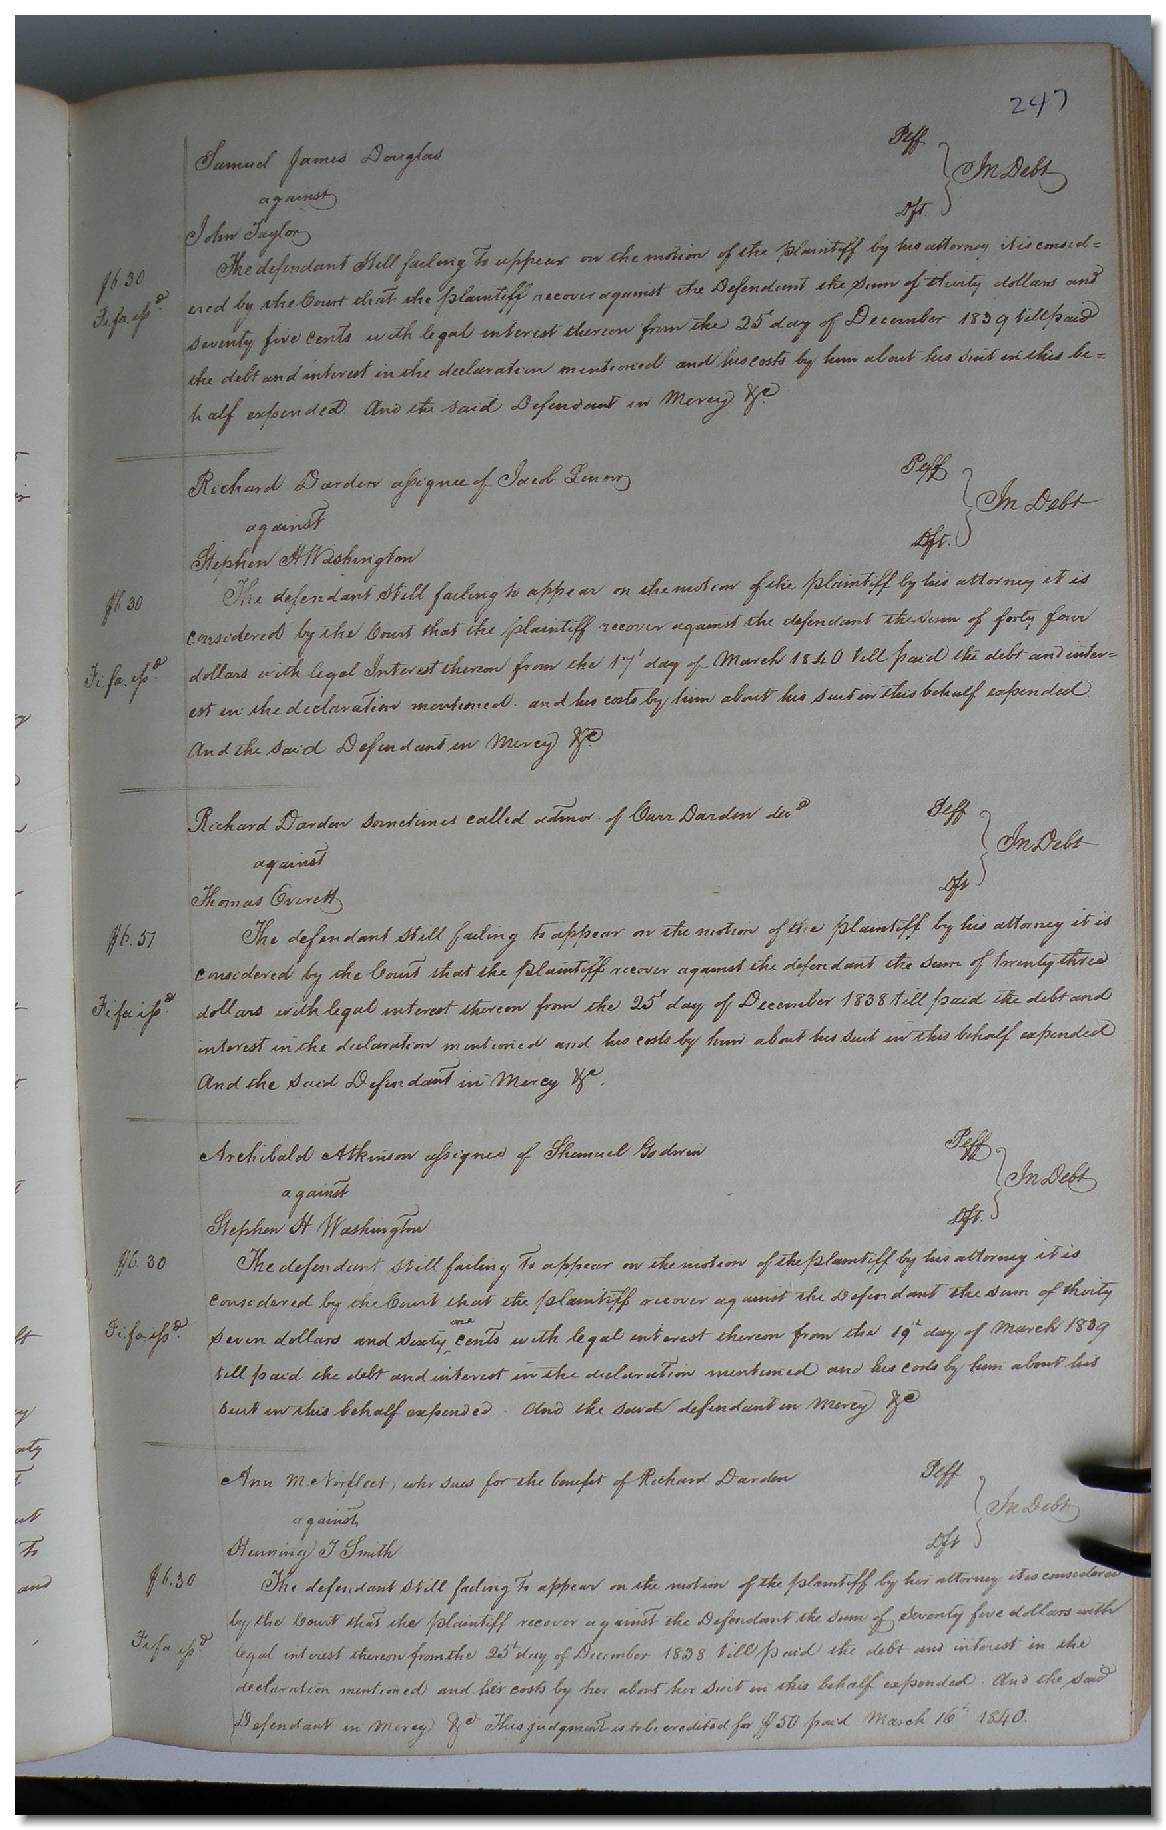 247
Samuel James Douglas Plff
against In Debt
John Taylor Dft.
The defendant still failing to appear on the motion of the plaintiff by his attorney it is consid=
$6.30
ered by the Court that the plaintiff recover against the Defendant the sum of thirty dollars and
Fi fa issd.
seventy five cents with legal interest thereon from the 25t day of December 1839 till paid
the debt and interest in the declaration mentioned and his costs by him about his suit in this be=
half expended. And the said Defendant in Mercy &c
Richard Darden assignee of Jacob Plff
against In Debt
Stephen H Washington Dft.
The defendant still failing to appear on the motion of the plaintiff by his attorney it is
$6.30
considered by the Court that the plaintiff recover against the defendant the sum of forty four
dollars with legal Interest thereon from the 17t day of March 1840 till paid the debt and inter=
Fi fa. issd.
est in the declaration mentioned. and his costs by him about his suit in this behalf expended
And the said Defendant in Mercy &c
Richard Darden sometimes called admor. of Carr Darden decd Plff
against In Debt
Thomas Everett Dft
$6.51
The defendant still failing to appear on the motion of the plaintiff by his attorney it is
considered by the Court that the plaintiff recover against the defendant the sum of twenty three
Fi fa issd.
dollars with legal interest thereon from the 25t day of December 1838 till paid the debt and
interest in the declaration mentioned and his costs by him about his suit in this behalf expended
And the said Defendant in Mercy &c.
Archibald Atkinson assignee of Shemuel Godwin Plff
against In Debt
Stephen H Washington Dft.
$6.30
The defendant still failing to appear on the motion of the plaintiff by his attorney it is
considered by the Court that the plaintiff recover against the Defendant the sum of thirty
one
Fi fa issd.
seven dollars and sixty ^ cents with legal interest thereon from the 19t day of March 1839
till paid the debt and interest in the declaration mentioned and his costs by him about his
suit in this behalf expended. And the said defendant in Mercy &c
Ann M. Norfleet, who sues for the benefit of Richard Darden Plff
against In Debt
Henning T Smith Dft
$6.30
The defendant still failing to appear on the motion of the plaintiff by her attorney it is considered
by the Court that the plaintiff recover against the Defendant the sum of Seventy five dollars with
Fi fa issd
legal interest thereon from the 25t day of December 1838 till paid the debt and interest in the
declaration mentioned and her costs by her about her suit in this behalf expended. And the said
Defendant in Mercy &c This judgment is to be credited for $50 paid March 16th 1840.